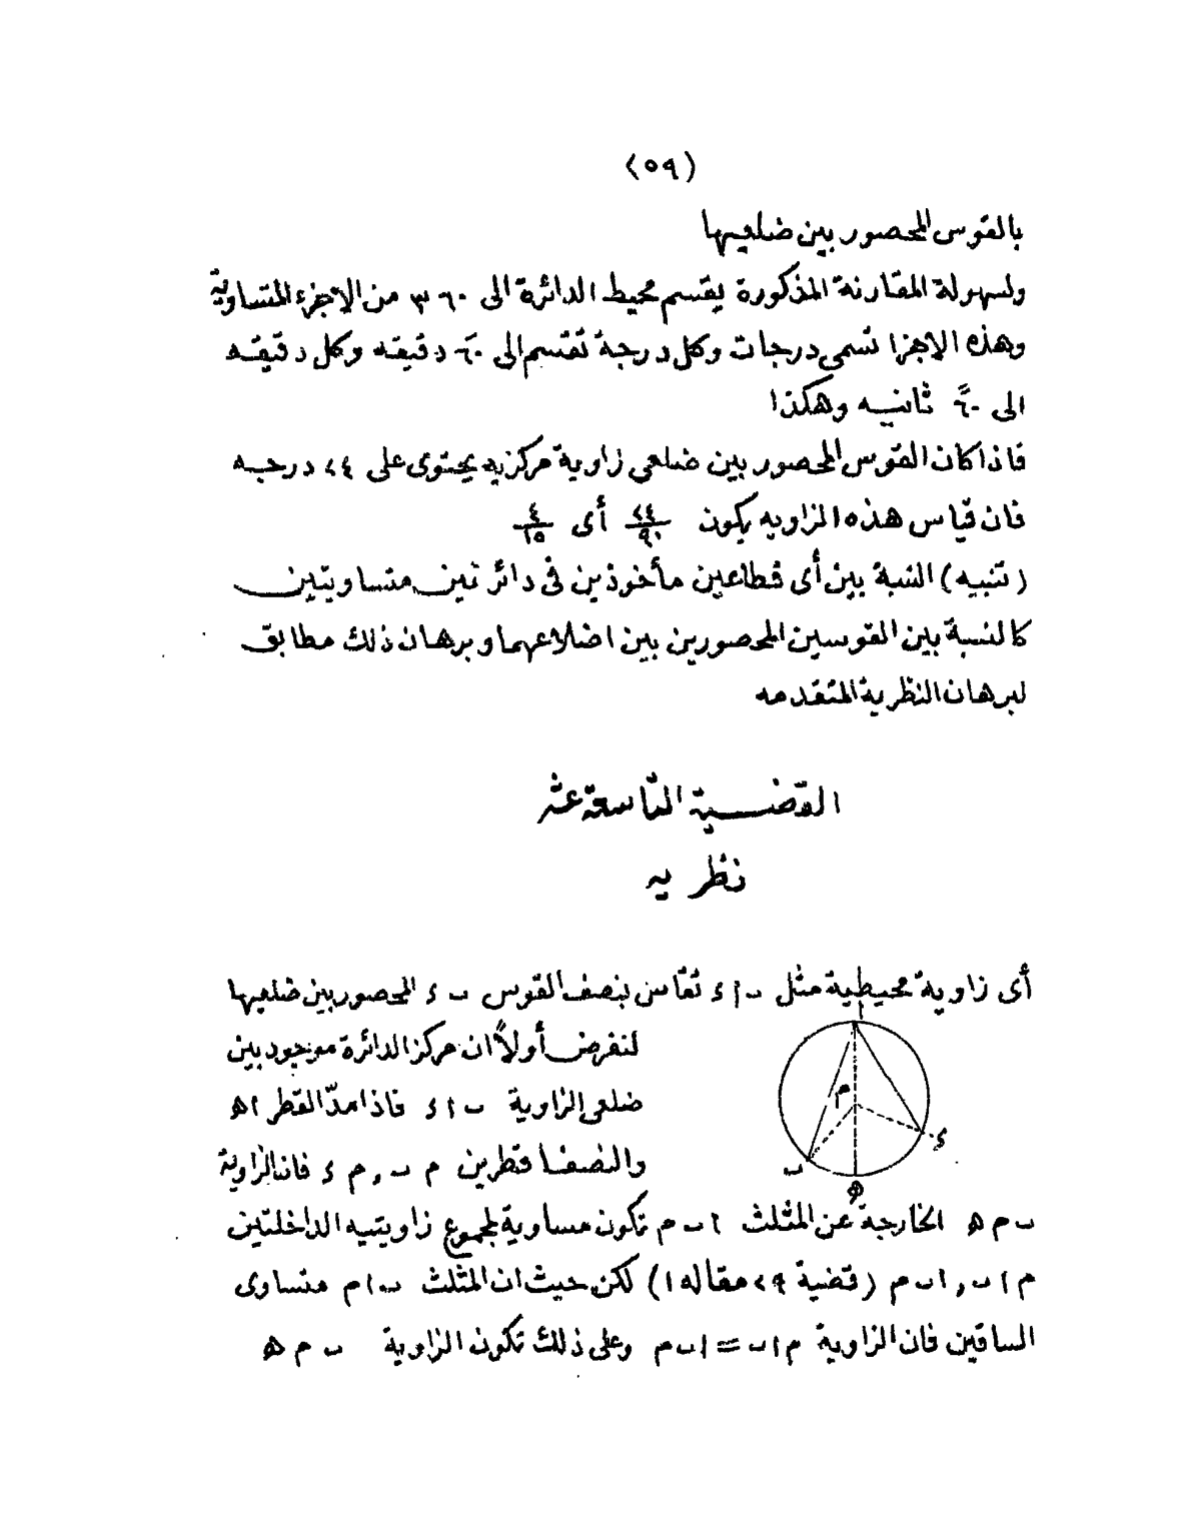 (٥٩)
بالقوس المحصور بين ضلعيها
ولسهولة المقارنة المذكورة يقسم محيط الدائرة الى ٣٦٠ من الاجزء المتساوية
وهذه الاجزا تسمى درجات وكل درجة تقسم الى ٦٠َ دقيقه وكل دقيقه
الى ٦٠ً ثانيه وهكذا
فاذا كان القوس المحصور بين ضلعي زاوية مركزيه يحتوى على ٢٤ درجه
فان قياس هذه الزاويه يكون ٢٤/٩٠ أى ٤/١٥
(تنبيه) النسبة بين أى قطاعين مأخوذين فى دائرتين متساويتين
كالنسبة بين القوسين المحصورين بين اضلاعهما وبرهان ذلك مطابق
لبرهان النظرية المتقدمه
القضية التاسعة عشر
نظريه
أى زاوية محيطية مثل ب ا د تقاس بنصف القوس ب د المحصور بين ضلعيها
لنفرض أولاً ان مركز الدائرة موجود بين
ضلعى الزاوية ب ا د فاذا مدّ القطر ا ه
والنصفا قطرين م ب , م د فان الزاوية
ب م ه الخارجة عن المثلث ا ب م تكون مساوية لمجموع زاويتيه الداخلتين
م ا ب , ا ب م (قضية ٢٩ مقاله ١) لكن حيث ان المثلث ب ا م متساوى
الساقين فان الزاوية م ا ب = ا ب م وعلى ذلك تكون الزاوية ب م ه
ا
م
د
ب
ه